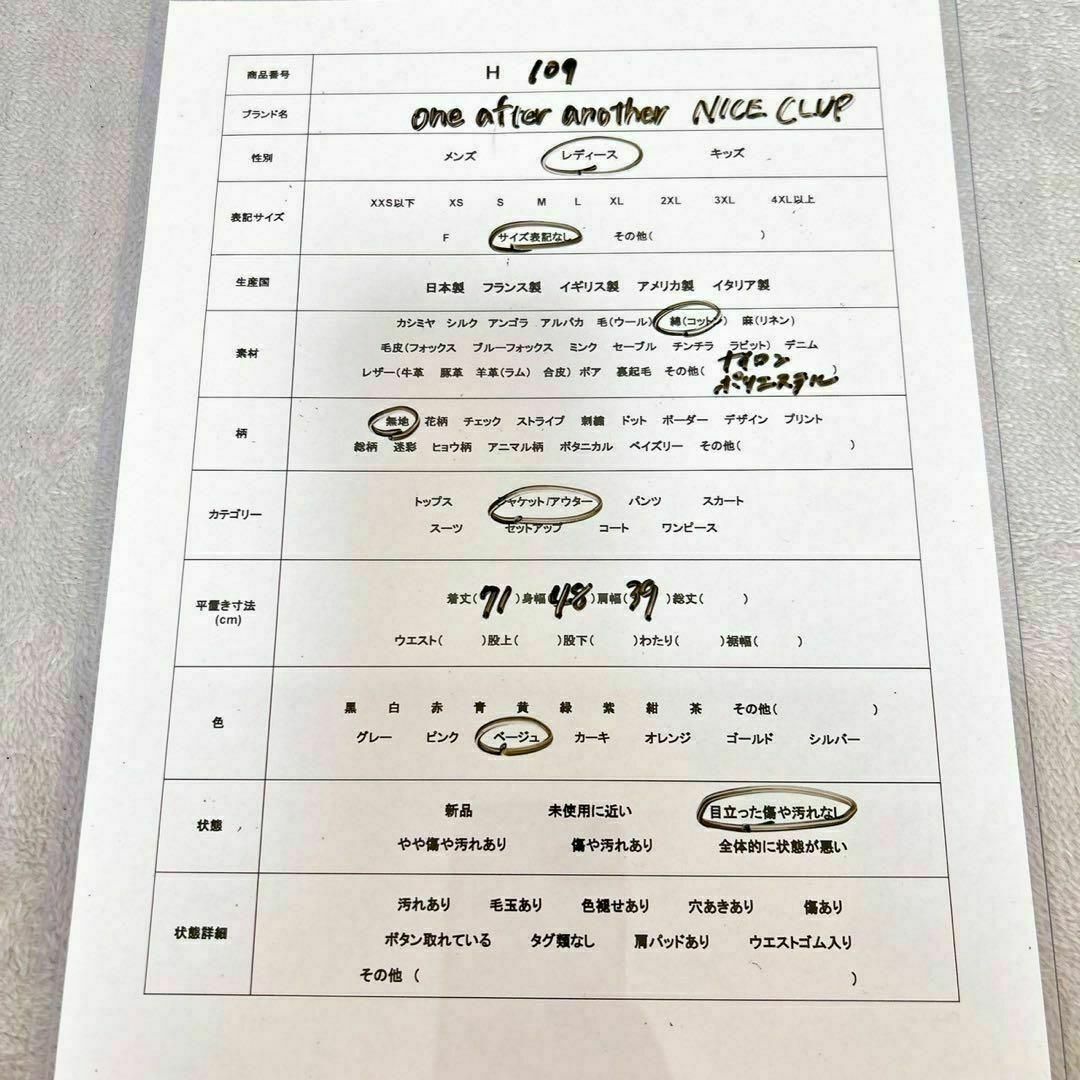 商品番号 H 109
ブランド名 one after another NICE CLUP
性別 メンズ レディース キッズ
表記サイズ XXS以下 XS S M L XL 2XL 3XL 4XL以上
F サイズ表記なし その他( )
生産国 日本製 フランス製 イギリス製 アメリカ製 イタリア製
素材 カシミヤ シルク アンゴラ アルパカ 毛(ウール) 綿(コットン) 麻(リネン)
毛皮(フォックス ブルーフォックス ミンク セーブル チンチラ ラビット) デニム
レザー(牛革 豚革 羊革(ラム) 合皮) ボア 裏起毛 その他( ナイロン
ポリエステル )
柄 無地 花柄 チェック ストライプ 刺繍 ドット ボーダー デザイン プリント
総柄 迷彩 ヒョウ柄 アニマル柄 ボタニカル ペイズリー その他( )
カテゴリー トップス ジャケット/アウター パンツ スカート
スーツ セットアップ コート ワンピース
平置き寸法 着丈( 71 )身幅( 48 )肩幅( 39 )総丈( )
(cm) ウエスト( )股上( )股下( )わたり( )裾幅( )
色 黒 白 赤 青 黄 緑 紫 紺 茶 その他( )
グレー ピンク ベージュ カーキ オレンジ ゴールド シルバー
状態 新品 未使用に近い 目立った傷や汚れなし
やや傷や汚れあり 傷や汚れあり 全体的に状態が悪い
状態詳細 汚れあり 毛玉あり 色褪せあり 穴あきあり 傷あり
ボタン取れている タグ類なし 肩パッドあり ウエストゴム入り
その他 ( )